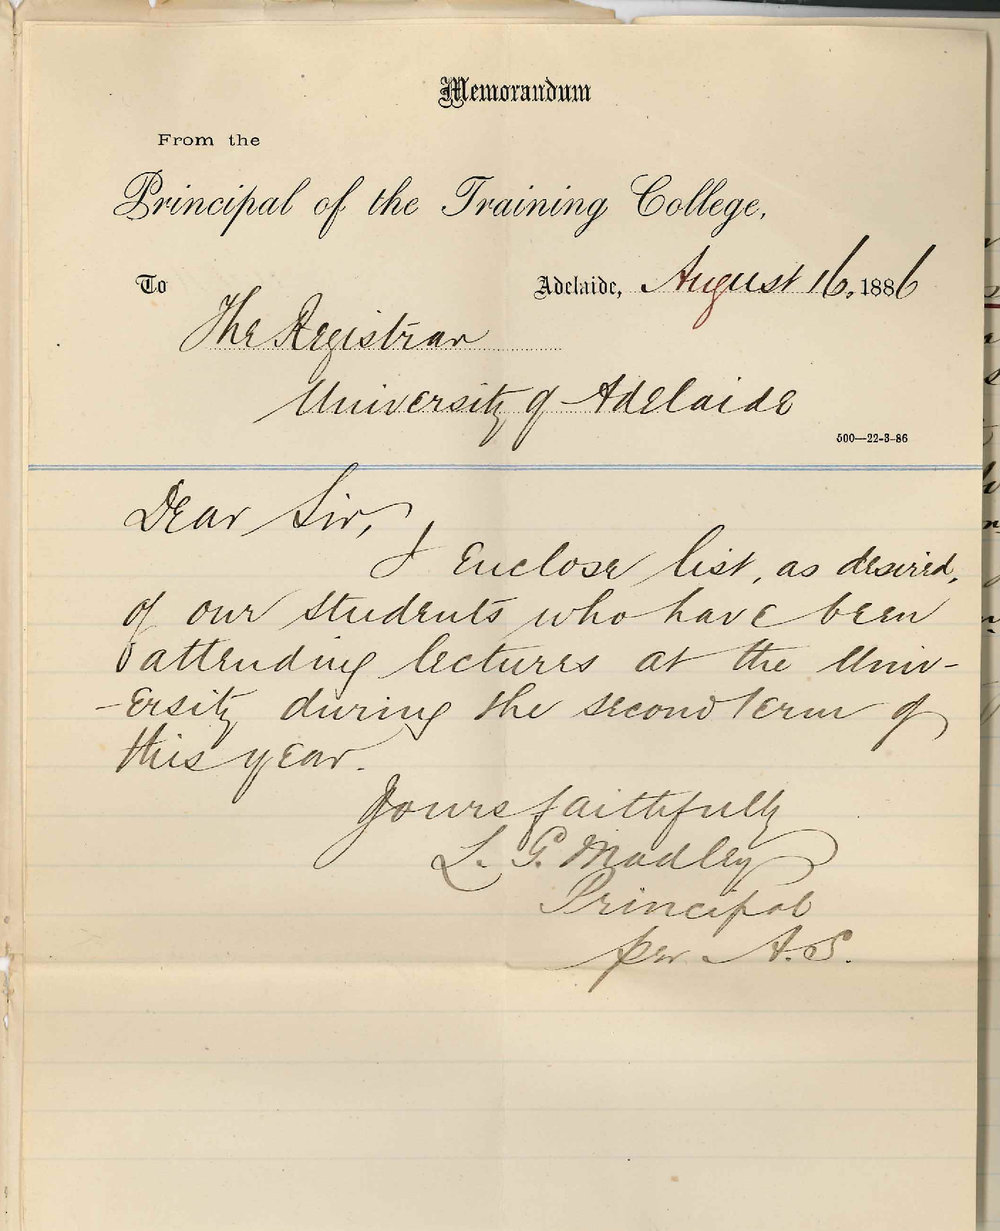 Memorandum
From the
Principal of the Training College,
To
Adelaide, August 16, 1886
The Registrar
University of Adelaide
500—22-3-86
Dear Sir,
I Enclose list, as desired,
of our students who have been
attending lectures at the Univ-
-ersity during the second term of
this year.
Yours faithfully
L. G. Madley
Principal
per A. S.